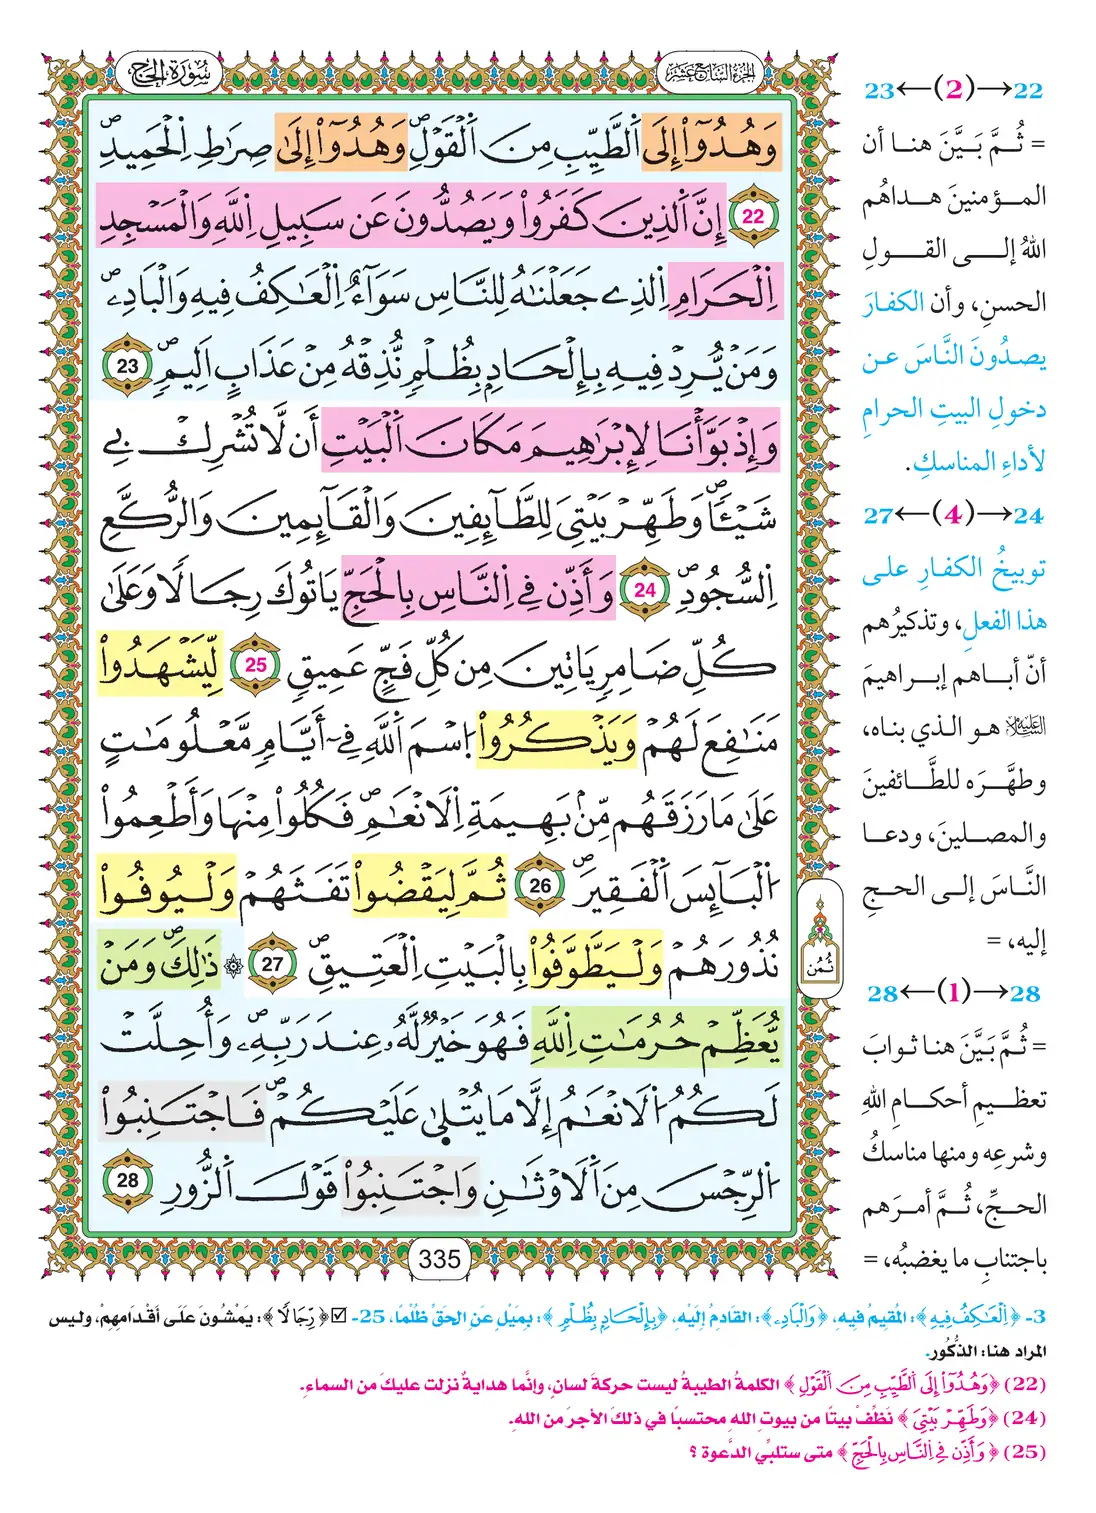 سُورَةُ الحَجّ
الجزء السابع عشر
وَهُدُوٓاْ إِلَى اَ۬لطَّيِّبِ مِنَ اَ۬لْقَوْلِۖ وَهُدُوٓاْ إِلَىٰ صِرَٰطِ اِ۬لْحَمِيدِۖ
22 إِنَّ اَ۬لذِينَ كَفَرُواْ وَيَصُدُّونَ عَن سَبِيلِ اِ۬للَّهِ وَالْمَسْجِدِ
اِ۬لْحَرَامِ اِ۬لذِے جَعَلْنَٰهُ لِلنَّاسِ سَوَآءٌ اِ۬لْعَٰكِفُ فِيهِ وَالْبَادِۦۖ
وَمَنْ يُّرِدْ فِيهِ بِإِلْحَادِۢ بِظُلْمٖ نُّذِقْهُ مِنْ عَذَابٍ اَلِيمٖۖ 23
وَإِذْ بَوَّأْنَا لِإِبْرَٰهِيمَ مَكَانَ اَ۬لْبَيْتِ أَن لَّا تُشْرِكْ بِے
شَيْـٔاٗۖ وَطَهِّرْ بَيْتِيَ لِلطَّآئِفِينَ وَالْقَآئِمِينَ وَالرُّكَّعِ
اِ۬لسُّجُودِۖ 24 وَأَذِّن فِے اِ۬لنَّاسِ بِالْحَجِّ يَاتُوكَ رِجَالاٗ وَعَلَىٰ
كُلِّ ضَامِرٖ يَاتِينَ مِن كُلِّ فَجٍّ عَمِيقٖ 25 لِّيَشْهَدُواْ
مَنَٰفِعَ لَهُمْ وَيَذْكُرُواْ اُ۪سْمَ اَ۬للَّهِ فِےٓ أَيَّامٖ مَّعْلُومَٰتٍ
عَلَىٰ مَا رَزَقَهُم مِّنۢ بَهِيمَةِ اِ۬لَانْعَٰمِۖ فَكُلُواْ مِنْهَا وَأَطْعِمُواْ
اُ۬لْبَآئِسَ اَ۬لْفَقِيرَۖ 26 ثُمَّ لِيَقْضُواْ تَفَثَهُمْ وَلْيُوفُواْ
نُذُورَهُمْ وَلْيَطَّوَّفُواْ بِالْبَيْتِ اِ۬لْعَتِيقِۖ 27 ۞ ذَٰلِكَۖ وَمَنْ
يُّعَظِّمْ حُرُمَٰتِ اِ۬للَّهِ فَهُوَ خَيْرٞ لَّهُۥ عِندَ رَبِّهِۦۖ وَأُحِلَّتْ
لَكُمُ اُ۬لَانْعَٰمُ إِلَّا مَا يُتْلَىٰ عَلَيْكُمْۖ فَاجْتَنِبُواْ
اُ۬لرِّجْسَ مِنَ اَ۬لَاوْثَٰنِ وَاجْتَنِبُواْ قَوْلَ اَ۬لزُّورِ 28
ثُمُن
335
22→(2)←23
= ثُمَّ بَيَّنَ هنا أن
المؤمنينَ هداهُم
اللهُ إلى القولِ
الحسنِ، وأن الكفارَ
يصدُونَ النَّاسَ عن
دخولِ البيتِ الحرامِ
لأداءِ المناسكِ.
24→(4)←27
توبيخُ الكفارِ على
هذا الفعلِ، وتذكيرُهم
أنّ أباهم إبراهيمَ
عليه السلام هو الذي بناه،
وطهَّرَه للطَّائفينَ
والمصلينَ، ودعا
النَّاسَ إلى الحجِ
إليه، =
28→(1)←28
= ثُمَّ بَيَّنَ هنا ثوابَ
تعظيمِ أحكامِ اللهِ
وشرعِه ومنها مناسكُ
الحجِّ، ثُمَّ أمرَهم
باجتنابِ ما يغضبُه، =
3- ﴿اِ۬لْعَٰكِفُ فِيهِ﴾: المُقِيمُ فيه، ﴿وَالْبَادِۦ﴾: القَادِمُ إِلَيْهِ، ﴿بِإِلْحَادِۢ بِظُلْمٖ﴾: بِمَيْلٍ عَنِ الحَقِّ ظُلْمًا، 25- ☑ ﴿رِجَالاٗ﴾: يَمْشُونَ عَلَى أَقْدَامِهِمْ، وليس
المراد هنا: الذُّكُور.
(22) ﴿وَهُدُوٓاْ إِلَى اَ۬لطَّيِّبِ مِنَ اَ۬لْقَوْلِ﴾ الكلمةُ الطيبةُ ليست حركةَ لسانٍ، وإنَّما هدايةٌ نزلت عليكَ من السماءِ.
(24) ﴿وَطَهِّرْ بَيْتِيَ﴾ نَظِّفْ بيتًا من بيوتِ اللهِ محتسبًا في ذلكَ الأجرَ من اللهِ.
(25) ﴿وَأَذِّن فِے اِ۬لنَّاسِ بِالْحَجِّ﴾ متى ستلبِّي الدَّعوة ؟